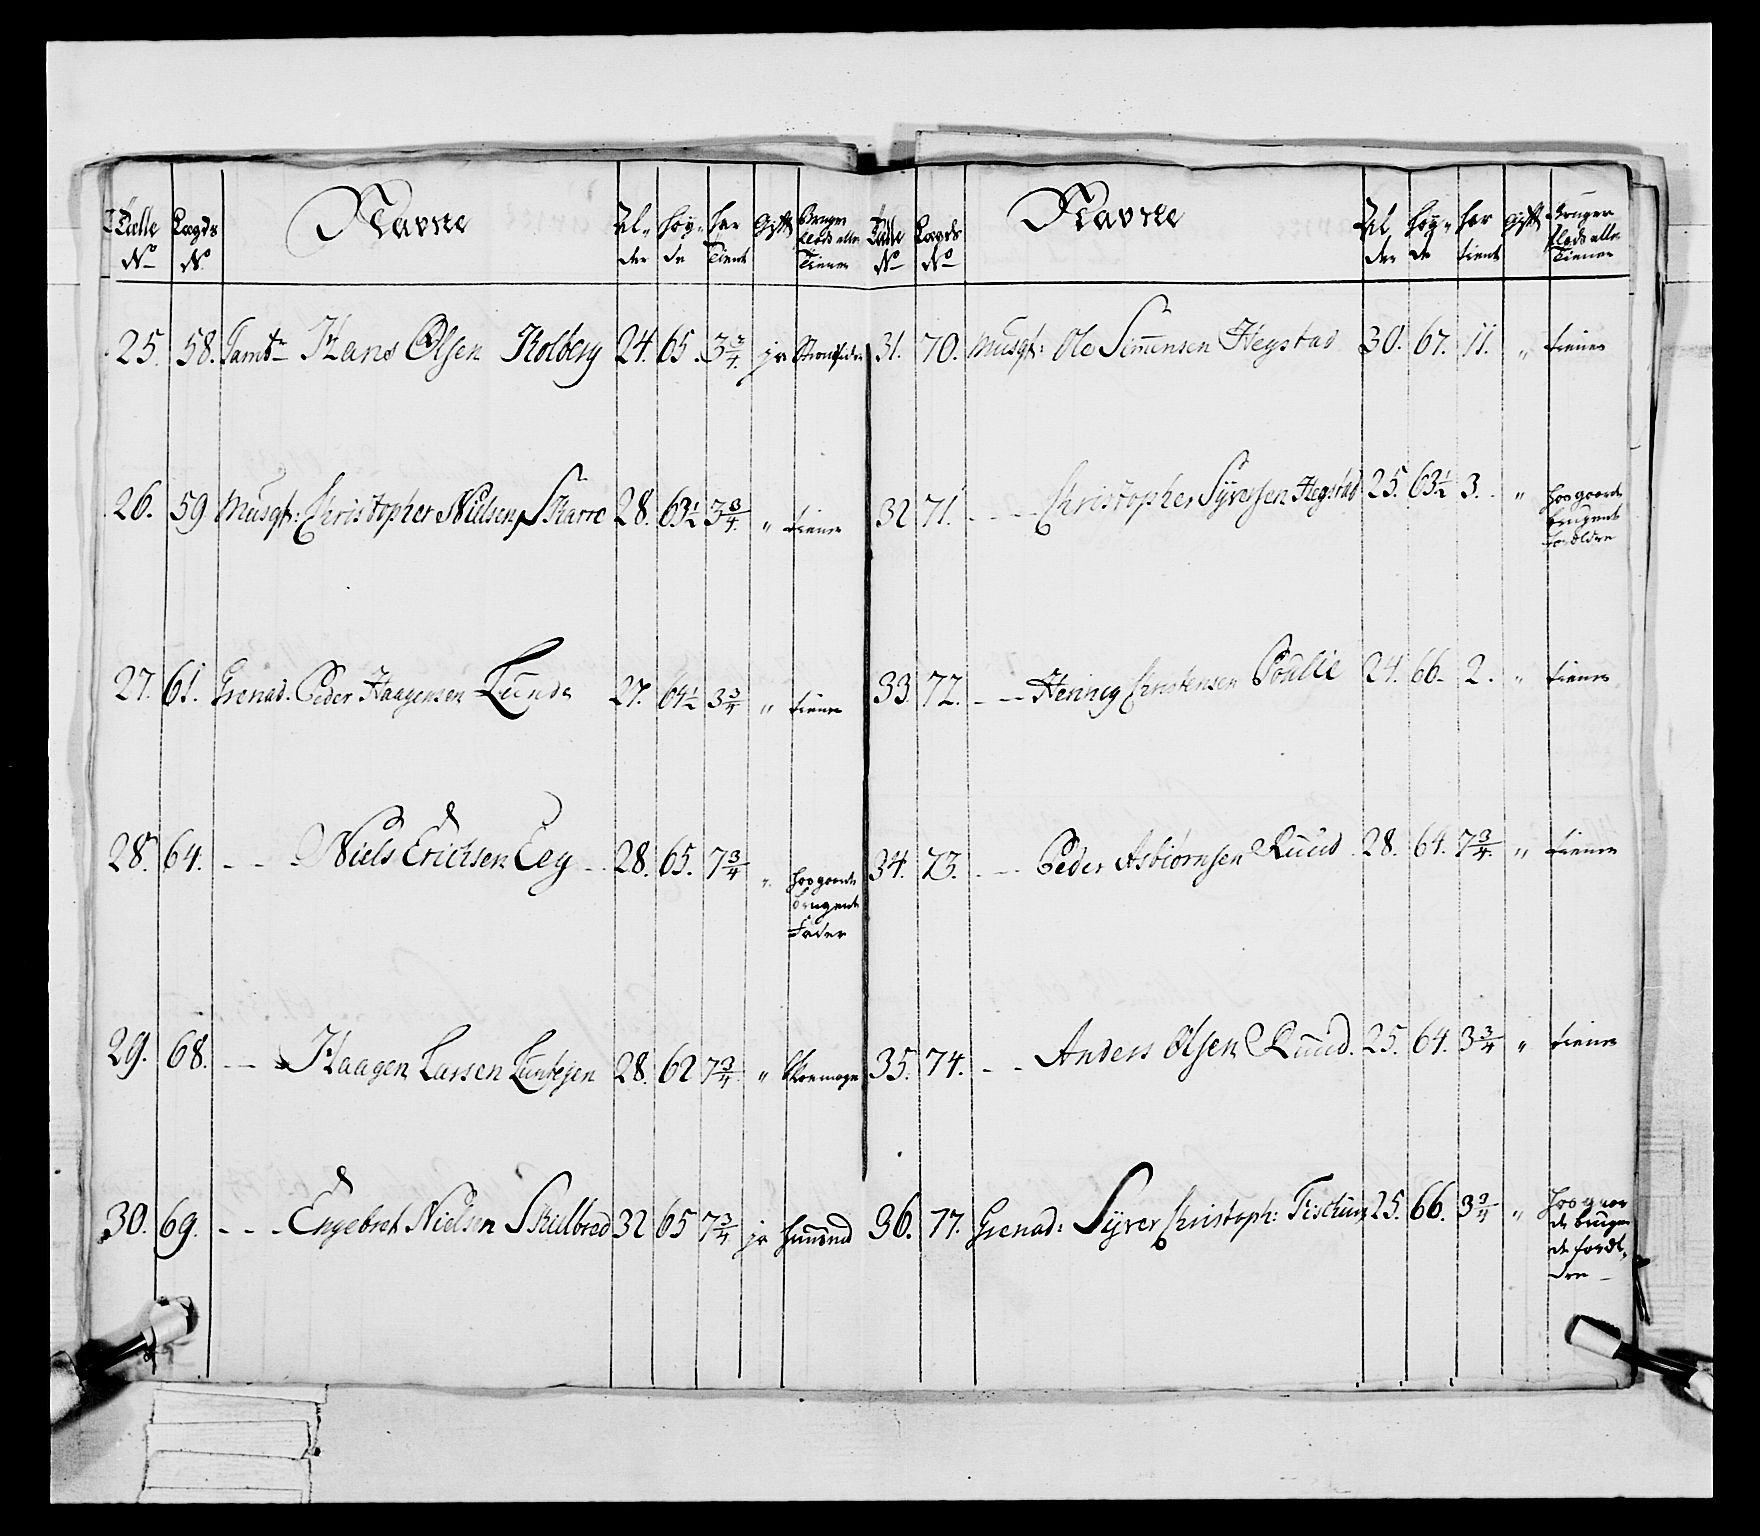 Tælle No Lægds No Navne Al-der Høy-de har Tient Gift Bruger Plads eller Tiener
25. 58. Tambr Hans Olsen Kolberg 24. 65. 3 3/4. ja
26. 59 Musqt: Christopher Nielsen Skarre 28. 63 1/2 3 3/4. " tiener
27. 61. Grenad. Peder Haagensen Lunde 27. 64 1/2 3 3/4 " tiener
28. 64. - - Niels Erichsen Eeg - 28. 65. 7 3/4 " hos gaards
brugende
Fader
29. 68. - - Haagen Larsen 28. 62 7 3/4 " Skoemager
30. 69. - - - Engebret Nielsen Skielbred 32 65 7 3/4 ja Huusmd
Tælle No Lægds No Navne Al-der Høy-de har tient Gift Bruger Plads eller Tiener
31. 70. Musqt: Ole Simensen Hegstad 30. 67. 11. " tiener
32 71. - - - Christopher Syversen Hegstad 25. 63 1/2 3. " hos gaards
brugende
Forældre
33. 72. - - Henneg Christensen Poulie 24. 66. 2. " tiener
34. 73. - - Peder Asbiørnsen Ruud 28. 64. 7 3/4. " tiener
35. 74. - - Anders Olsen Ruud. 25. 64. 3 3/4 " tiener
36. 77. Grenad: Syver Christoph: 25. 66. 3 3/4 " hos gaar
ds brugen
de foræl-
dre -